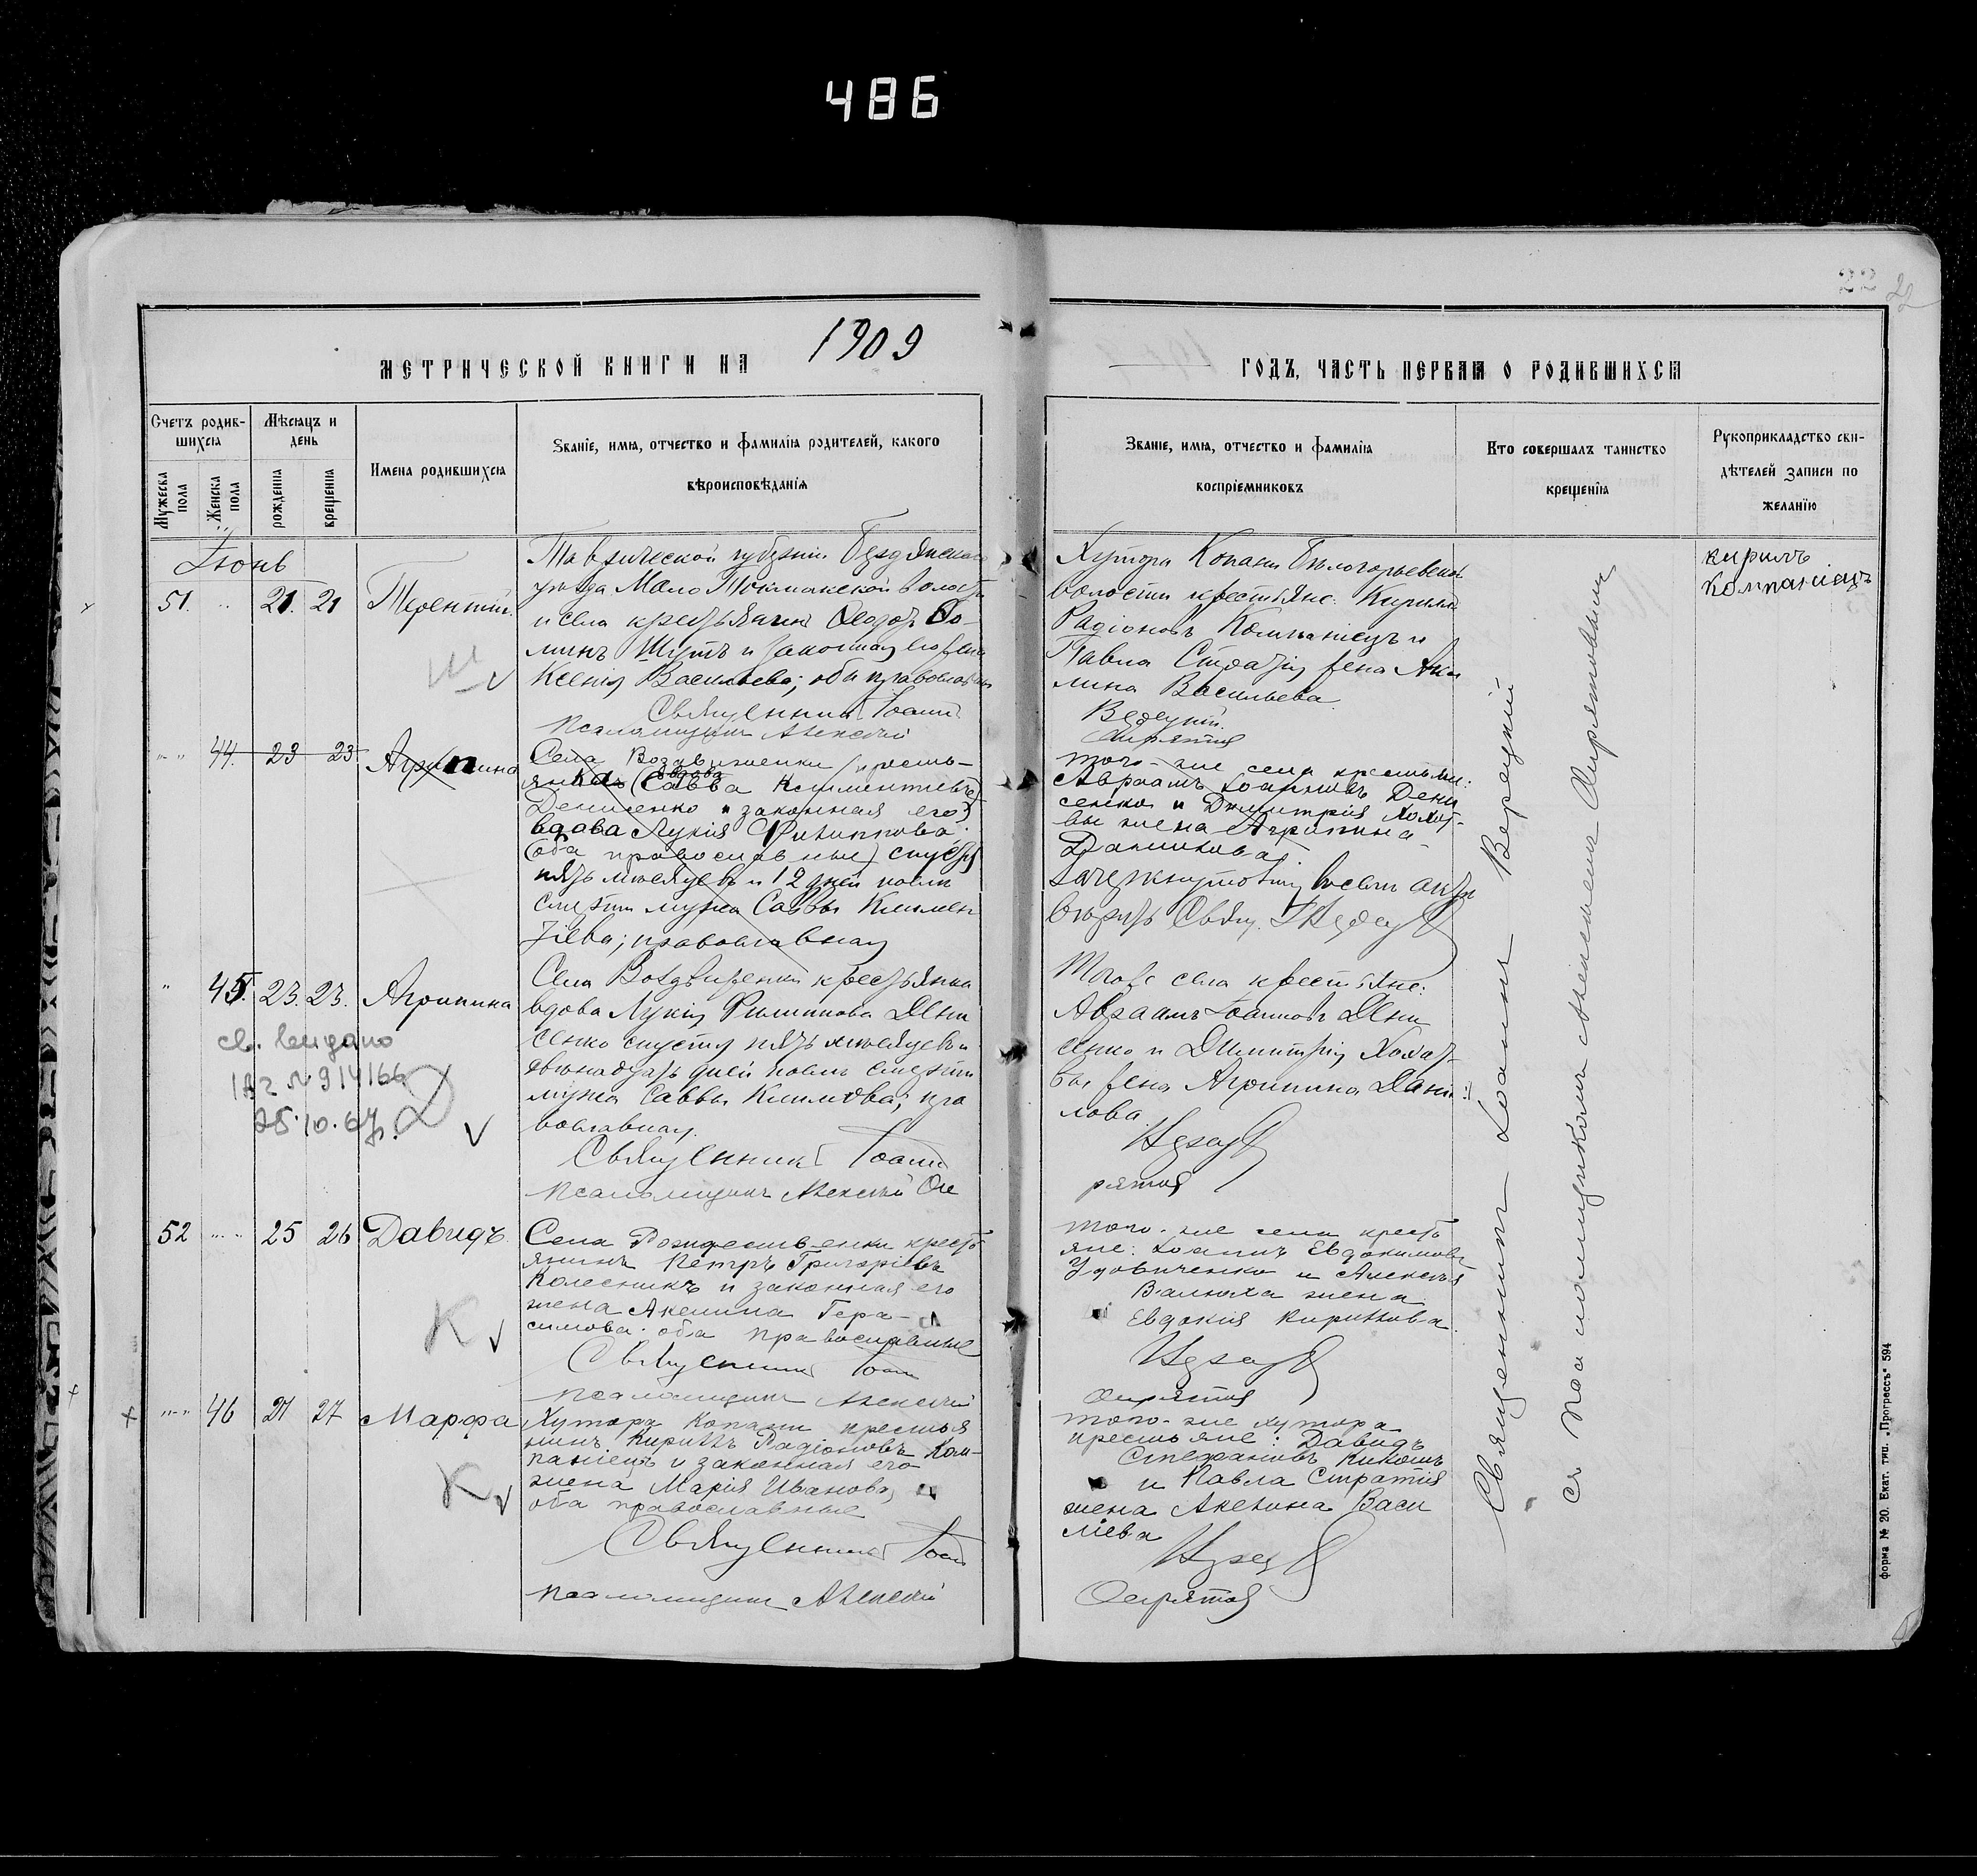 486
22
МЕТРИЧЕСКОЙ КНИГИ НА 1909
ГОДЪ, ЧАСТЬ ПЕРВАЯ О РОДИВШИХСЯ
Счетъ родив-
шихся
Мѣсяцъ и
день
Мужеска
пола
Женска
пола
рожденія
крещенія
Имена родившихся
Званіе, имя, отчество и фамилія родителей, какого
вѣроисповѣданія
Званіе, имя, отчество и фамилія
воспріемниковъ
Кто совершалъ таинство
крещенія
Рукоприкладство сви-
дѣтелей записи по
желанію
Іюнь
51. 21. 21 Терентій.
Таврической губерніи Бердянскаго
уѣзда Мало Токмакской волости
и села крестьянинъ Ѳеодоръ Ѳо-
минъ Шутъ и законная его жена
Ксенія Васильева; оба православные
Священникъ Іоаннъ
Псаломщикъ Алексѣй
Хутора Копани Бѣлогорьевской
волости крестьяне: Кириллъ
Радіоновъ Компаніецъ и
Павла Стратія жена Аки
лина Васильева
Верецкій
Оирятовъ
кирилъ
Компаніецъ
44. 23 23 Агрипина
Села Воздвиженки кресть-
янка вдова (Савва Климентіевъ)
Денисенко и законная его)
вдова Лукія Филиппова;
(оба православные) спустя
пять мѣсяцевъ и 12 дней послѣ
смерти мужа Саввы Климен
тіева; православная
того-же села крестьяне:
Авраамъ Іоанновъ Дени
сенко и Димитрія Холат-
вы жена Агрипина
Данилова.
45. 23. 23. Агрипина
Села Воздвиженки крестьянка
вдова Лукія Филиппова Дени
сенко спустя пять мѣсяцевъ и
двѣнадцать дней послѣ смерти
мужа Саввы Климова; пра
вославная.
Священникъ Іоаннъ
Псаломщикъ Алексѣй
Того же села крестьяне:
Авраамъ Іоанновъ Дени
сенко и Димитрія Холат-
вы жена Агрипина Дани
лова
св. выдано
25.10.67.
Д
52 25 26 Давидъ.
Села Рождественки кресть
янинъ Петръ Григоріевъ
Колесникъ и законная его
жена Акилина Гера-
симова. оба православные
Священникъ Іоаннъ
Псаломщикъ Алексѣй
того-же села кресть
яне: Іоаннъ Евдокимовъ
Удовиченко и Алексѣя
Валюха жена
Евдокія Кириллова.
К
46 27 27 Марфа
Хутора Копани крестья
нинъ Кириллъ Радіоновъ Ком-
паніецъ и законная его
жена Марія Иванова,
оба православные
Священникъ Іоаннъ
Псаломщикъ Алексѣй
того-же хутора
крестьяне: Давидъ
Стефановъ Кикошъ
и Павла Стратія
жена Акелина Васи
ліева
К
Священникъ Іоаннъ Верецкій
съ псаломщикомъ Алексѣемъ
форма № 20. Екат. тип. „Прогрессъ“ 594